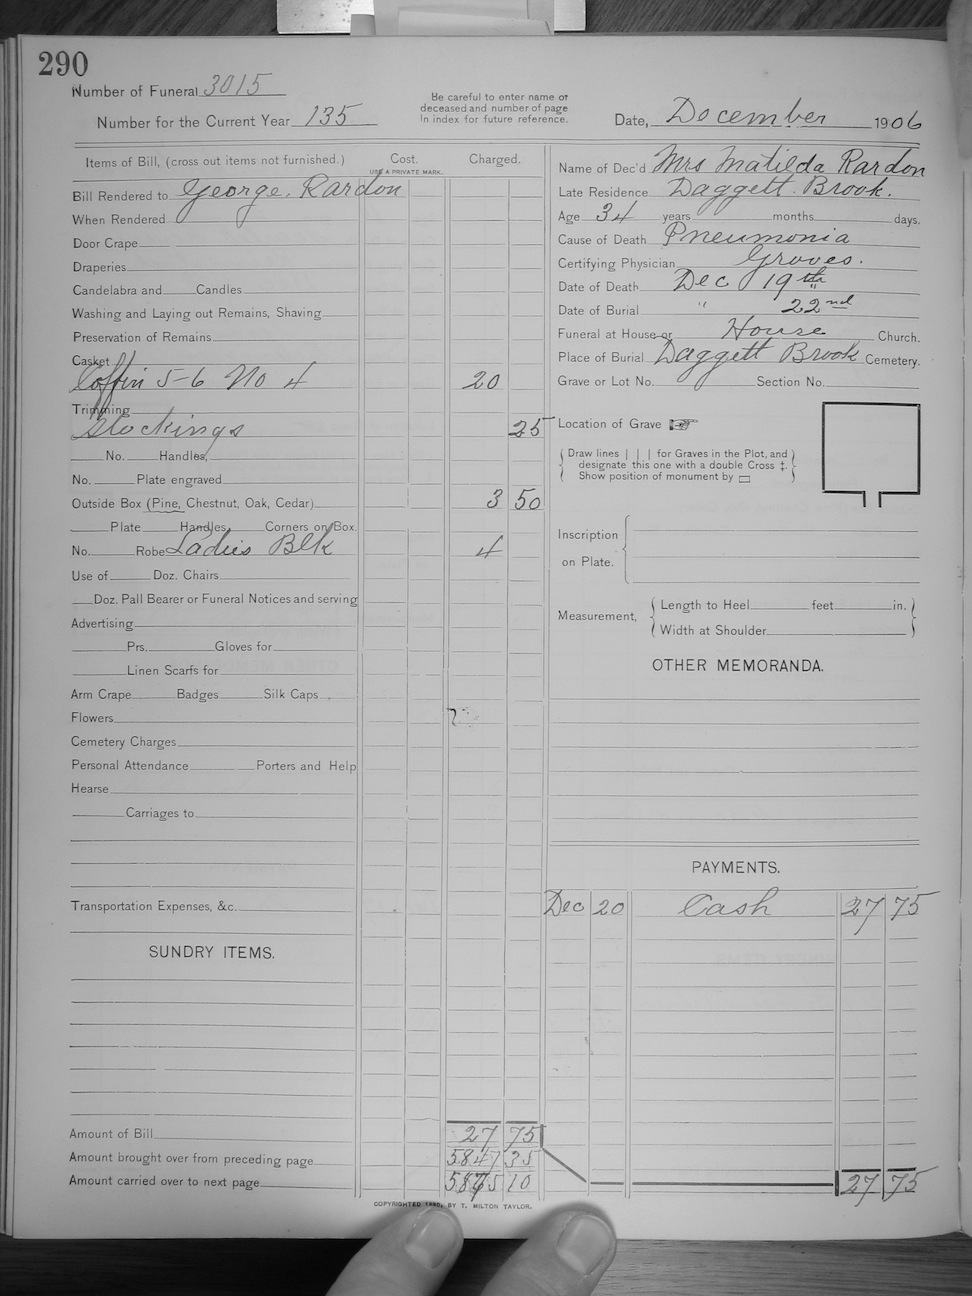 290
Number of Funeral 3015
Number for the Current Year 135
Be careful to enter name of
deceased and number of page
in index for future reference.
Date, December 1906
Items of Bill, (cross out items not furnished.) Cost. Charged.
USE A PRIVATE MARK.
Bill Rendered to George. Rardon
When Rendered
Door Crape
Draperies
Candelabra and Candles
Washing and Laying out Remains, Shaving
Preservation of Remains
Casket
Coffin 5-6 No 4 20
Trimming
Stockings 25
No. Handles,
No. Plate engraved
Outside Box (Pine, Chestnut, Oak, Cedar) 3 50
Plate Handles Corners on Box.
No. Robe Ladies Blk 4
Use of Doz. Chairs
Doz. Pall Bearer or Funeral Notices and serving
Advertising
Prs. Gloves for
Linen Scarfs for
Arm Crape Badges Silk Caps
Flowers
Cemetery Charges
Personal Attendance Porters and Help
Hearse
Carriages to
Transportation Expenses, &c.
SUNDRY ITEMS.
Amount of Bill 27 75
Amount brought over from preceding page 5847 35
Amount carried over to next page 5875 10
Name of Dec'd Mrs Matilda Rardon
Late Residence Daggett Brook.
Age 34 years months days.
Cause of Death Pneumonia
Certifying Physician Groves.
Date of Death Dec 19th
Date of Burial " 22nd
Funeral at House or House Church.
Place of Burial Daggett Brook Cemetery.
Grave or Lot No. Section No.
Location of Grave
Draw lines | | | for Graves in the Plot, and
designate this one with a double Cross ‡.
Show position of monument by ▭
Inscription
on Plate.
Measurement, Length to Heel feet in.
Width at Shoulder
OTHER MEMORANDA.
PAYMENTS.
Dec 20 Cash 27 75
27 75
COPYRIGHTED BY T. MILTON TAYLOR.